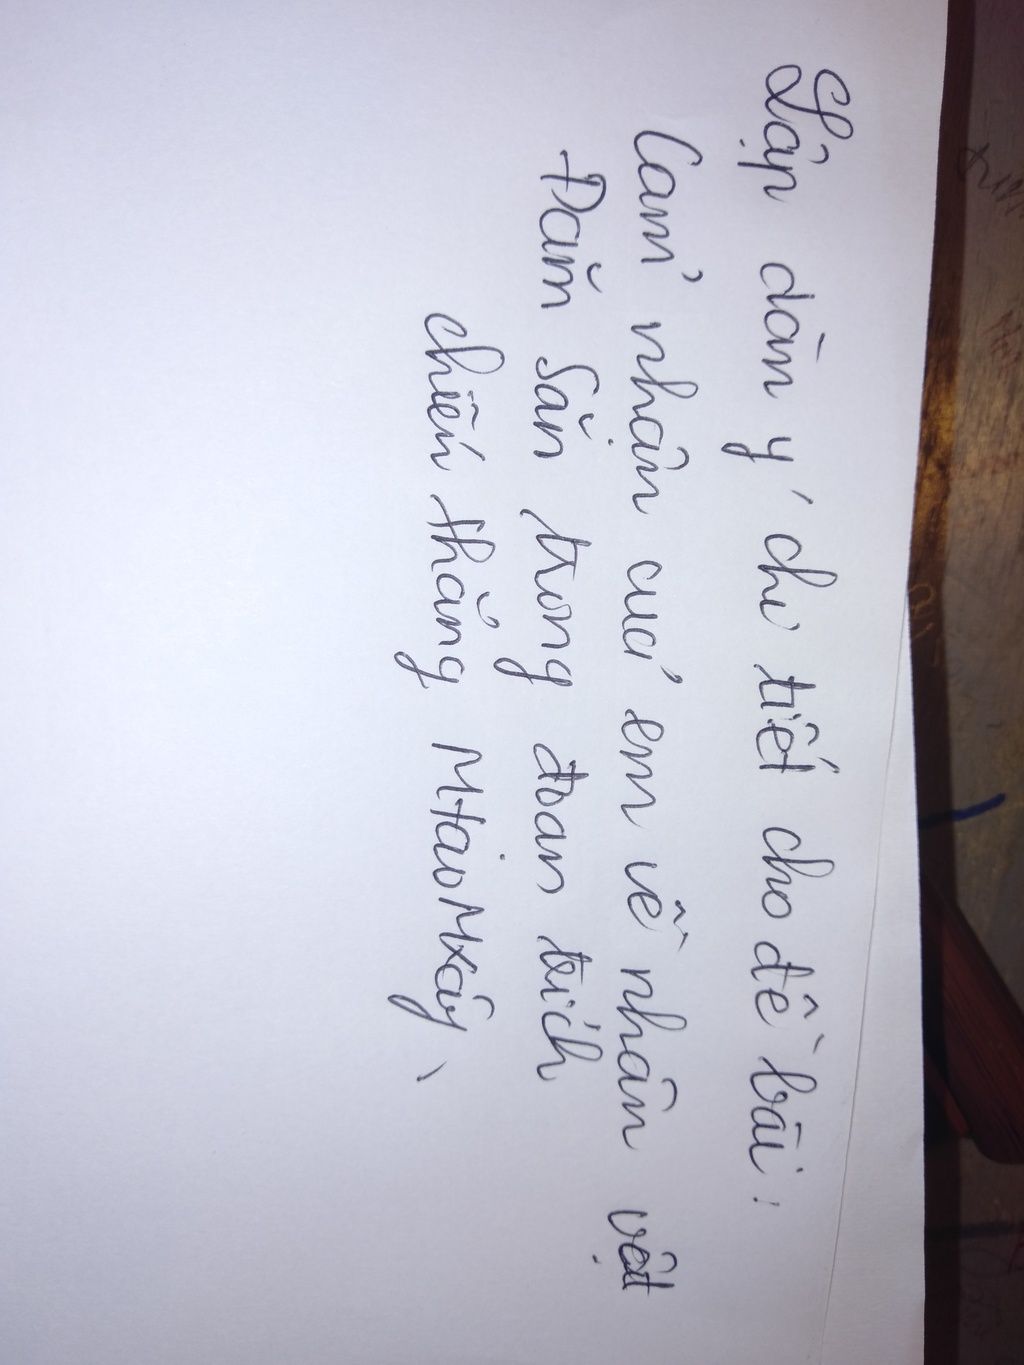 Lập dàn ý chi tiết cho đề bài:
Cảm nhận của em về nhân vật
Đăm Săn trong đoạn trích
chiến thắng Mtao Mxây